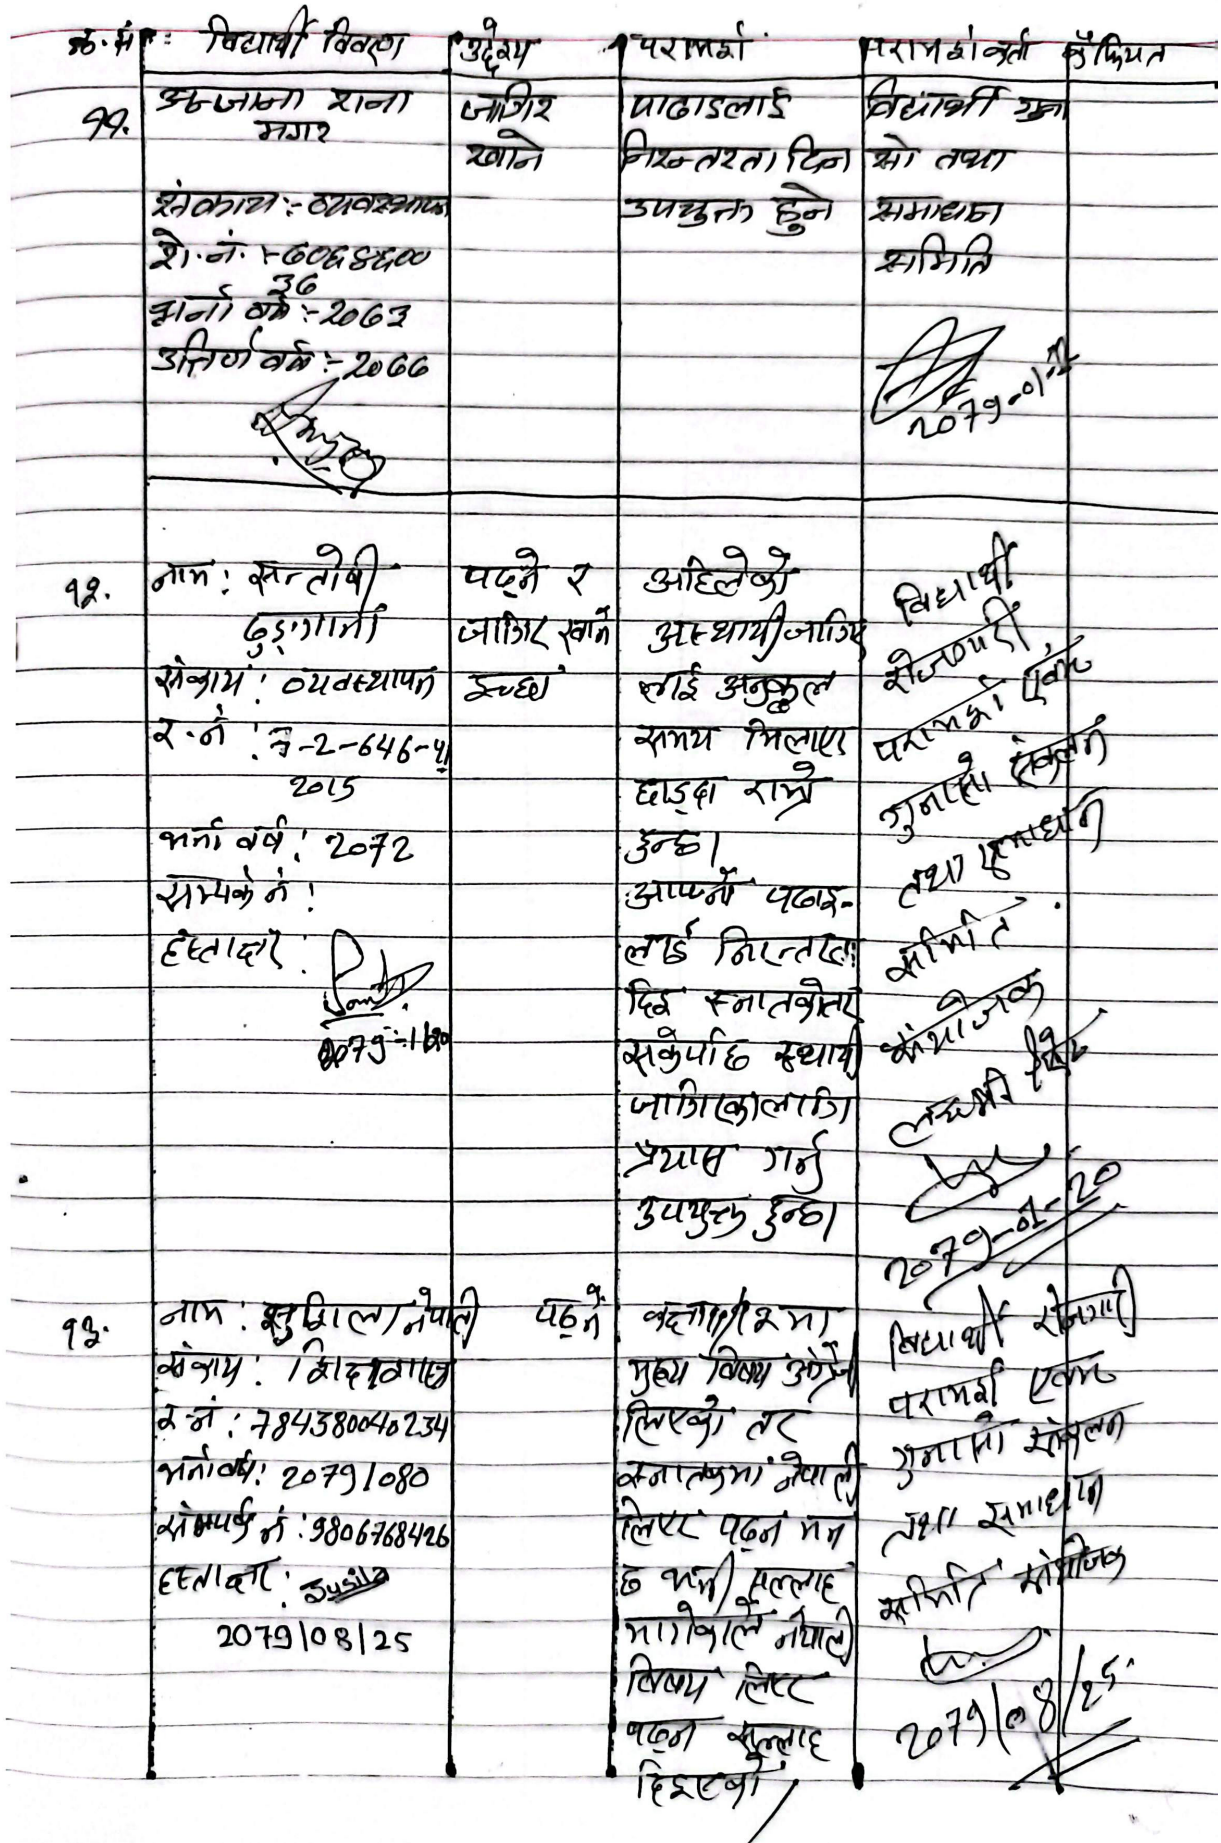 क्र.सं. विद्यार्थी विवरण उद्देश्य परामर्श परामर्शकर्ता कैफियत
११. अन्जाना राना
मगर
संकाय :- व्यवस्थापन
भर्ना वर्ष :- 2063
उत्तिर्ण वर्ष :- 2066
जागिर
खाने
पाढाइलाई
निरन्तरता दिन
उपयुक्त हुने
विद्यार्थी गुना
सो तथा
समाधान
समिति
2079-01-
१२. नाम : सन्तोषी
ढुङ्गाना
संकाय : व्यवस्थापन
र.नं : -2-646-
2015
भर्ना वर्ष : 2072
सम्पर्क नं :
हस्ताक्षर :
पढ्ने र
जागिर खाने
इच्छा
अहिलेको
अस्थायी जागिर
लाई अनुकूल
समय मिलाएर
छाड्दा राम्रो
हुन्छ।
आफ्नो पढाइ-
लाई निरन्तरता
दिइ स्नातकोत्तर
सकेपछि स्थायी
जागिरकालागि
प्रयास गर्नु
उपयुक्त हुन्छ।
विद्यार्थी
रोजगारी,
परामर्श एवम्
गुनासो संकलन
तथा समाधान
समिति
संयोजक
2079-01-20
१३. नाम : सुशिला नेपाली
संकाय : शिक्षाशास्त्र
र.नं : 784380040234
भर्ना वर्ष : 2079/080
सम्पर्क नं : 9806768426
हस्ताक्षर : Susila
2079/08/25
पढ्ने
कक्षा 11/12 मा
मुख्य विषय अंग्रेजी
लिएको तर
स्नातकमा नेपाली
लिएर पढ्न मन
छ भनी सल्लाह
मागेकाले नेपाली
विषय लिएर
पढ्न सल्लाह
दिइएको।
विद्यार्थी रोजगारी
परामर्श एवम्
गुनासो संकलन
तथा समाधान
समिति संयोजक
2079/08/25